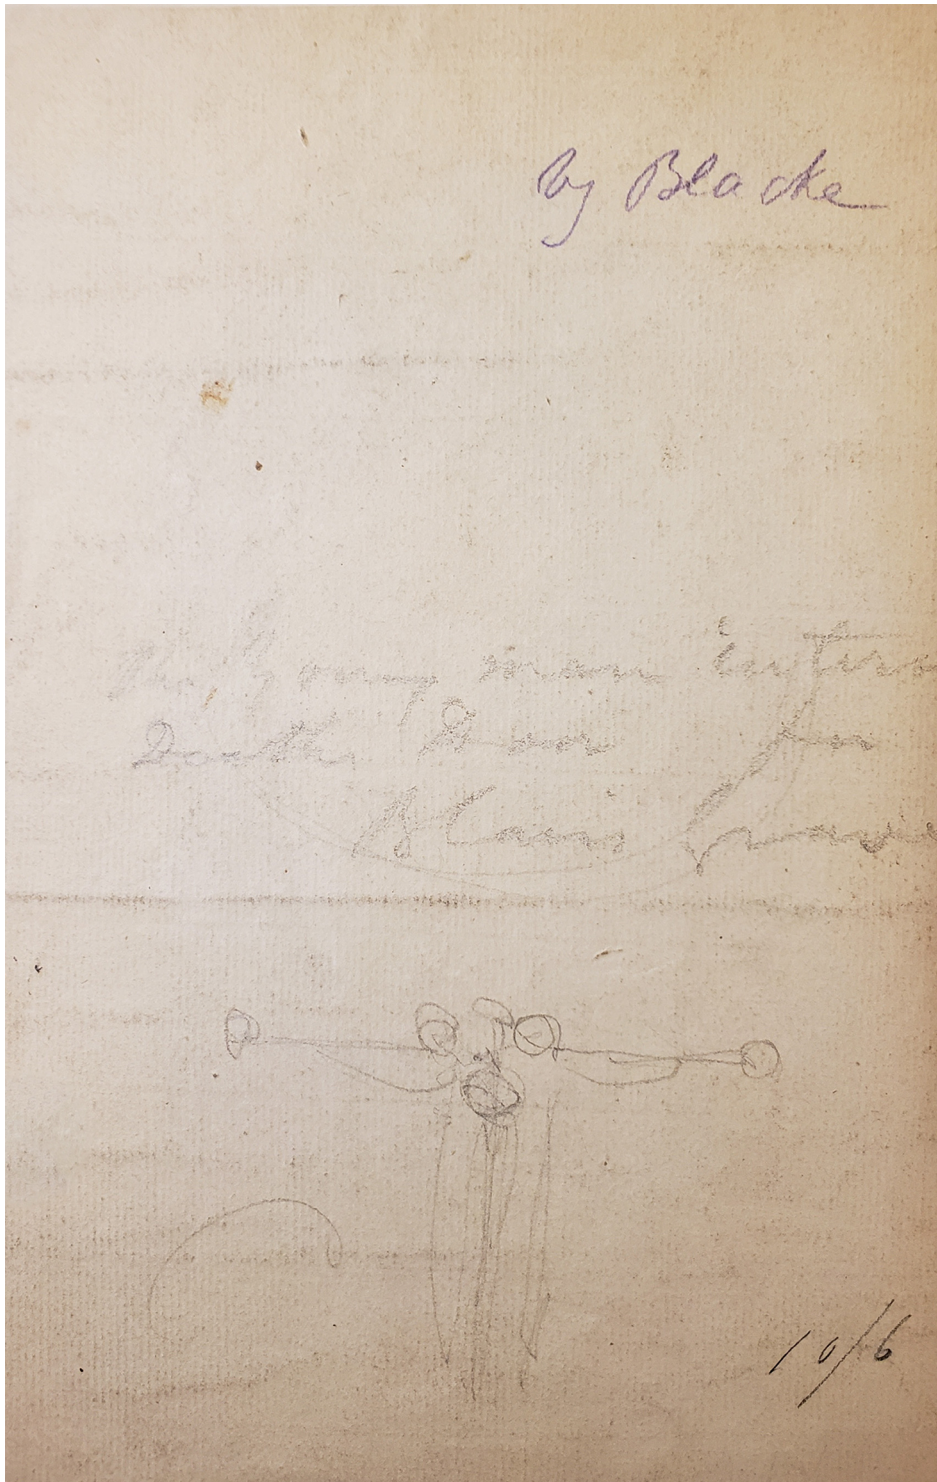 by Blacke
The Young man entra
Death's Door for
Blairs Grave
10/6